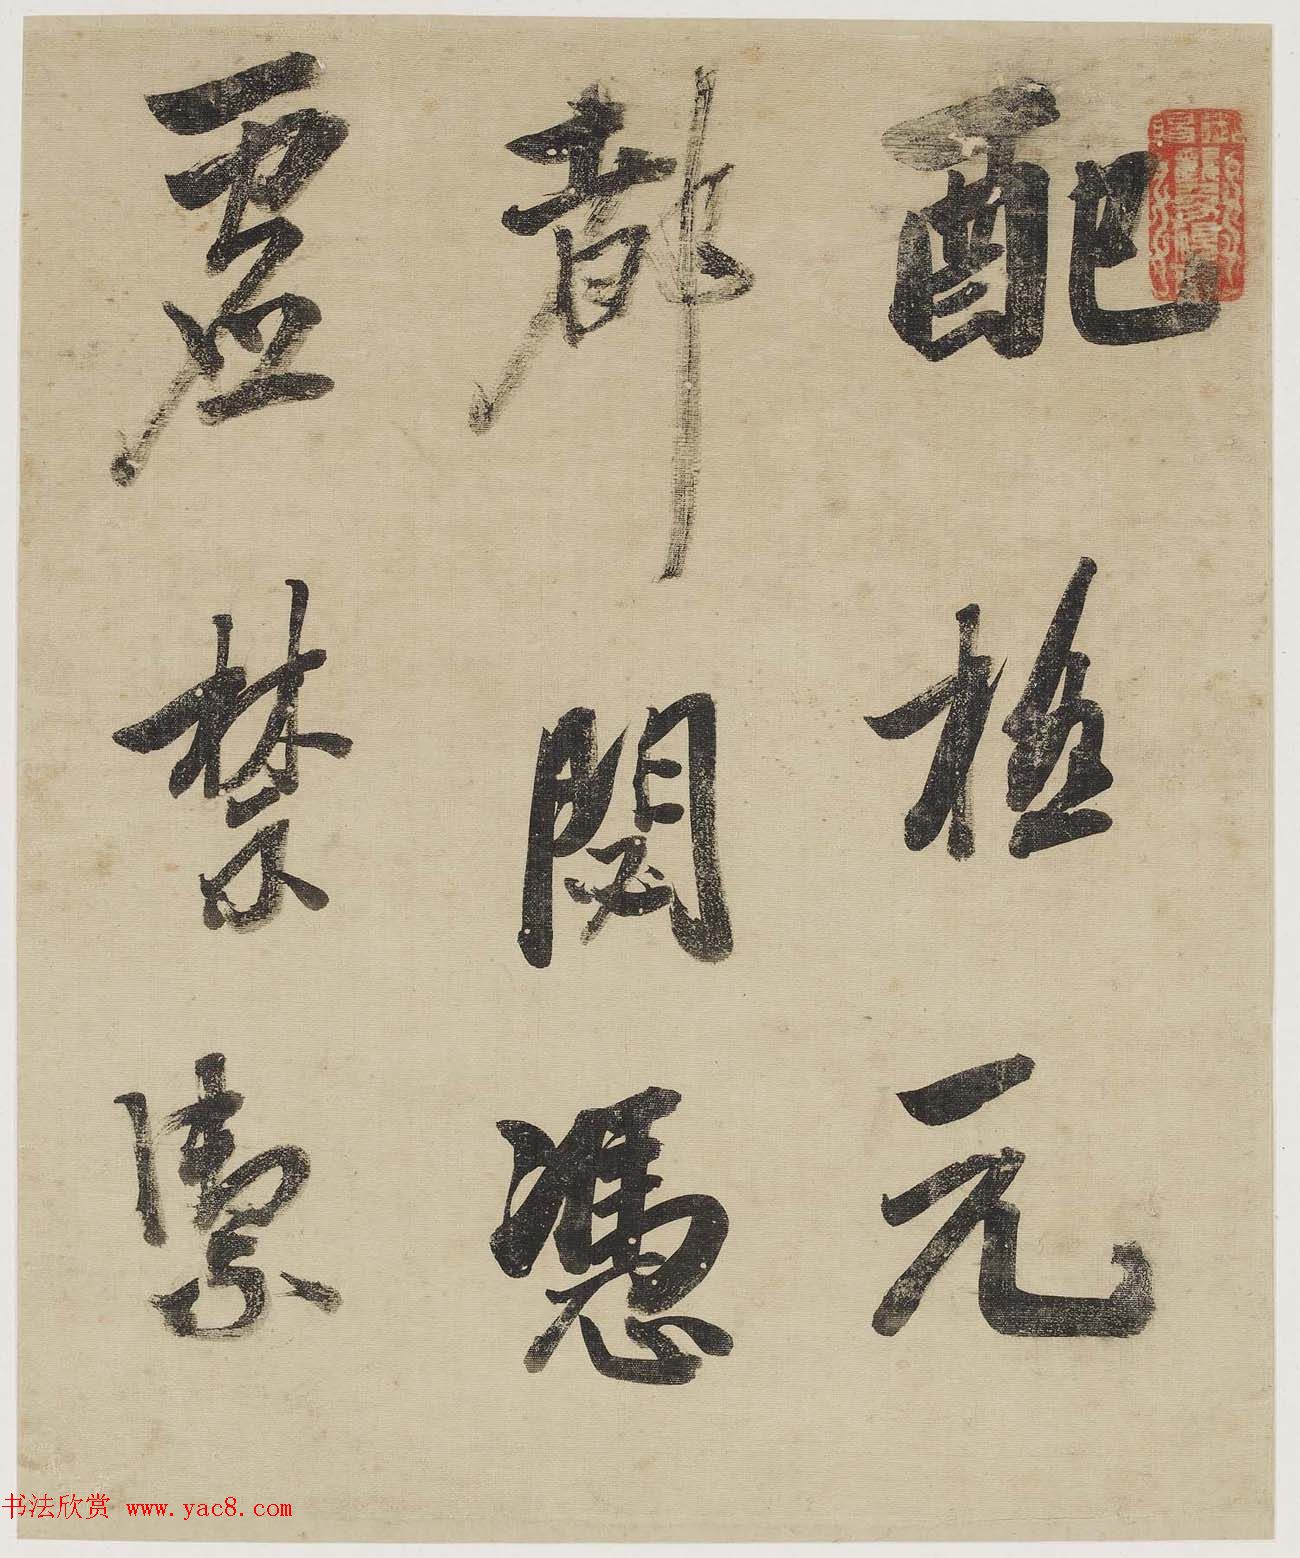 配極元
都閟憑
虛禁籞
书法欣赏 www.yac8.com